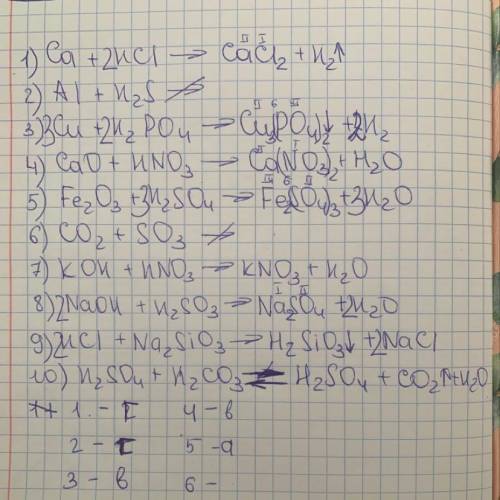 1) Ca + 2HCl → CaCl₂ + H₂↑
2) Al + H₂S ↛
3) 3Cu + 2H₂PO₄ → Cu₃(PO₄)₂↓ + 2H₂
4) CaO + HNO₃ → Ca(NO₃)₂ + H₂O
5) Fe₂O₃ + 3H₂SO₄ → Fe₂(SO₄)₃ + 3H₂O
6) CO₂ + SO₃ ↛
7) KOH + HNO₃ → KNO₃ + H₂O
8) 2NaOH + H₂SO₃ → Na₂SO₄ + 2H₂O
9) 2HCl + Na₂SiO₃ → H₂SiO₃↓ + 2NaCl
10) H₂SO₄ + H₂CO₃ ⇄ H₂SO₄ + CO₂↑ + H₂O
1. – г 4 – в
2 – г 5 – а
3 – в 6 –